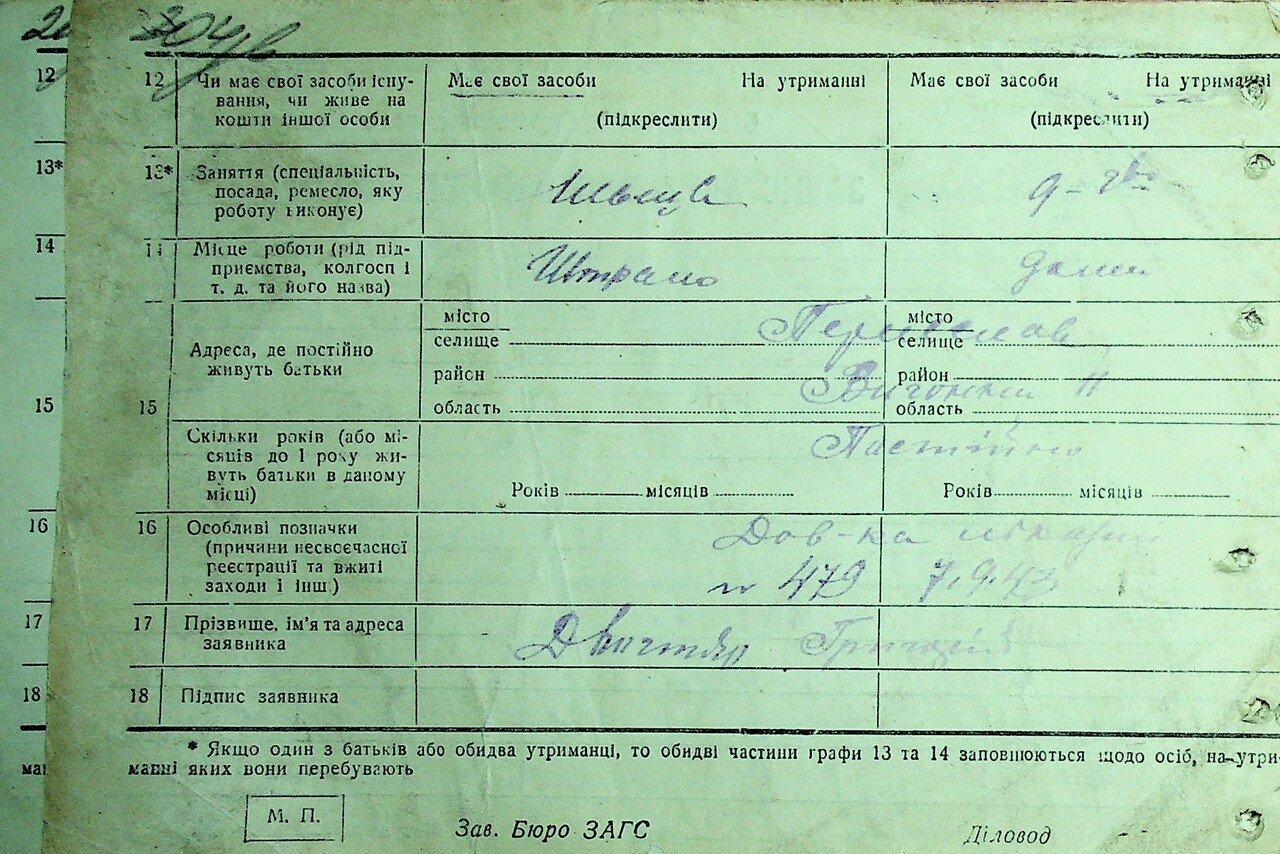 12
13*
14
15
16
17
18
12 Чи має свої засоби існу-
вання, чи живе на
кошти іншої особи
Має свої засоби На утриманні
(підкреслити)
Має свої засоби На утриманні
(підкреслити)
13* Заняття (спеціальність,
посада, ремесло, яку
роботу виконує)
14 Місце роботи (рід під-
приємства, колгосп і
т. д. та його назва)
дома
15 Адреса, де постійно
живуть батьки
місто
селище
район
область
місто
селище
район
область
Скільки років (або мі-
сяців до 1 року жи-
вуть батьки в даному
місці)
Років місяців
Років місяців
Постійно
16 Особливі позначки
(причини несвоєчасної
реєстрації та вжиті
заходи і інш.)
Дов-ка лікарні
№ 479 7.9.43
17 Прізвище, ім'я та адреса
заявника
Григорій
18 Підпис заявника
* Якщо один з батьків або обидва утриманці, то обидві частини графи 13 та 14 заповнюються щодо осіб, на утри-
манні яких вони перебувають
М. П.
Зав. Бюро ЗАГС
Діловод